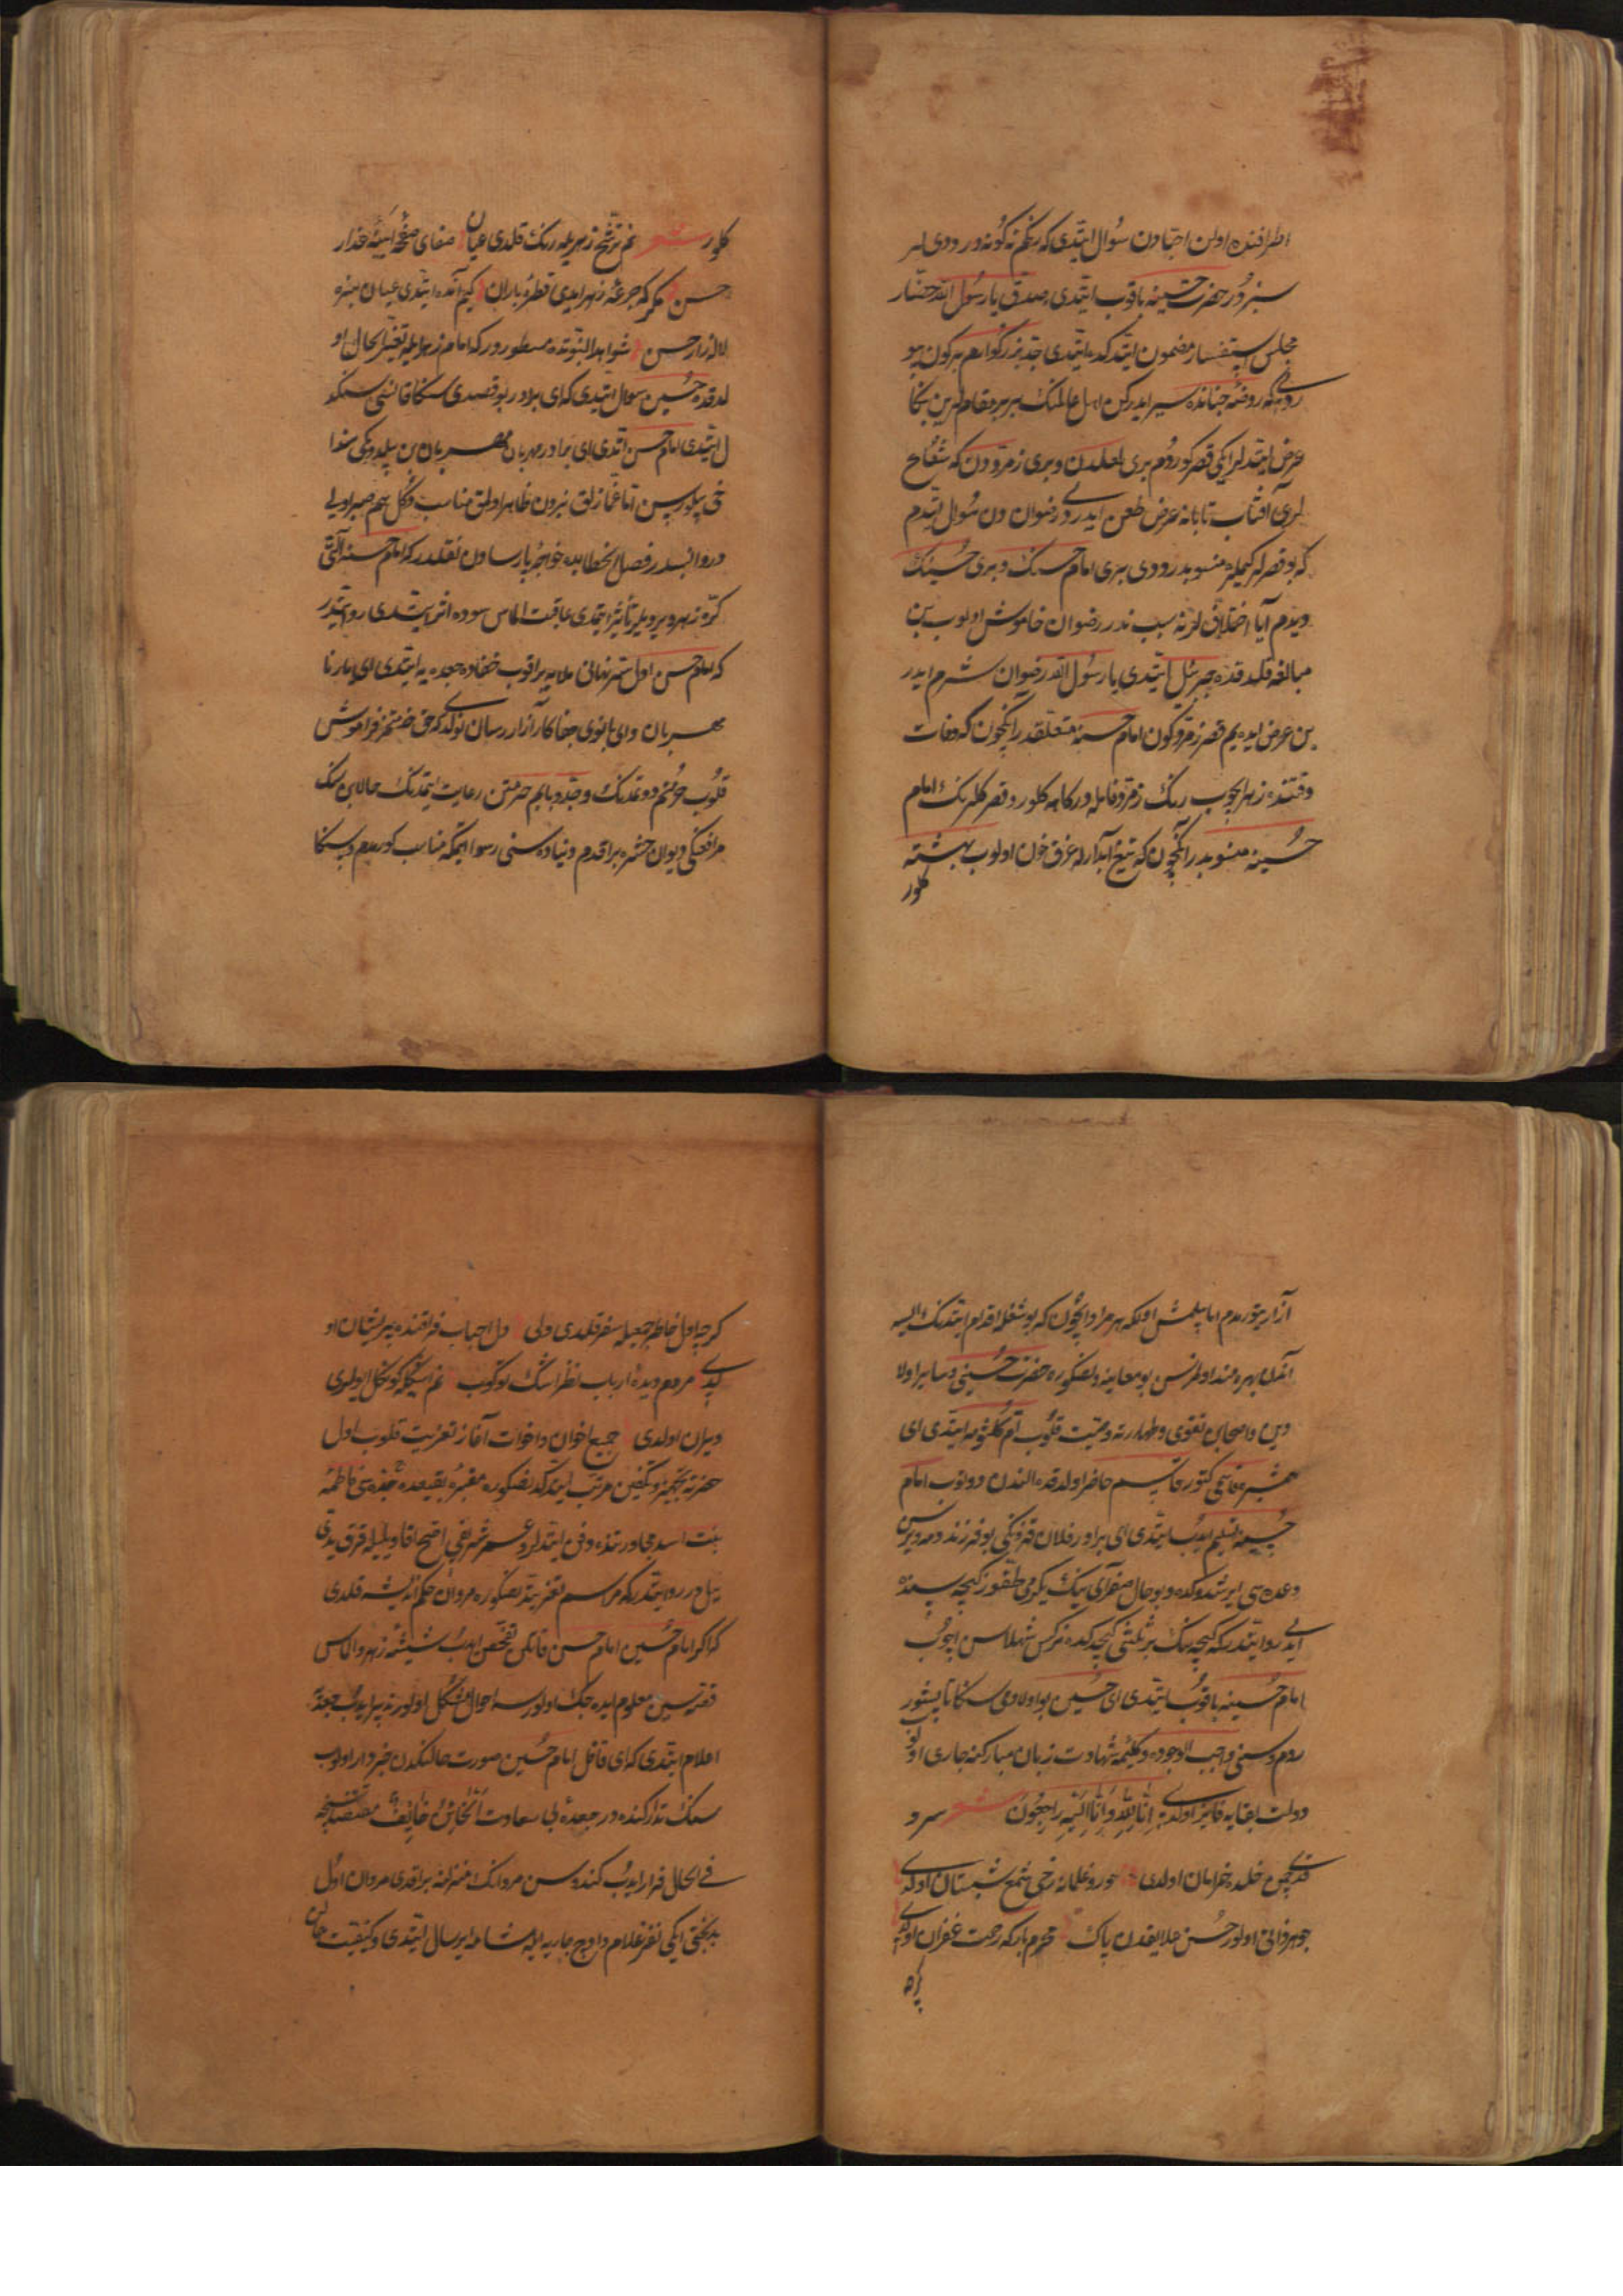 اطرافنده اولن احبادن سؤال ایتدی که رنکم نه کونه در دودی لر
سبز دور حضرت حسینه باقوب ایتدی صدق یا رسول الله حضار
مجلس استفسار مضمون ایتدکده ایتدی جد بزرکوارم بیر کون بیو
روبکه روضهٔ جنانده سیر ایدرکن اهل عالمنک بیر بیر مقاملرین بکا
عرض ایتدلر ایکی قصر کوردوم بری لعلدن و بری زمرددن که شعاع
لری آفتاب تابانه عرض طعن ایدردی رضوان دن سؤال ایتدم
که بو قصرلر کیملره منسوبدر دودی بیری امام حسننک و بیری حسیننک
دیدم آیا اختلاف لونه سبب ندر رضوان خاموش اولوب بن
مبالغه قلدقده جبرئیل ایتدی یا رسول الله رضوان شرم ایدر
بن عرض ایدیم قصر زمردکون امام حسنه متعلقدر انکچون که وفات
وقتنده زهر ایچوب رنک زمردفامله درکاهه کلور و قصر کلرنک امام
حسینه منسوبدر انکچون که تیغ آبدارله غرق خون اولوب بهشته
کلور
کلور شعر غم ترشح زهریله رنک قلدی عیان صفای صفحهٔ آیینهٔ عذار
حسن مکر که جرعهٔ زهر ایدی قطرهٔ باران کیم آنده ایتدی عیان سبزه
لاله زار حسن شواهد النبوتده مسطور در که امام زهرایله تغییر حال او
لدقده حسین سؤال ایتدی که ای برادر بو قصدی سکا قانسی سنکد
ل ایتدی امام حسن اتدی ای برادر مهربان مهربان بن بیلدوکمی سندا
خی بیلورسن اما غمازلق بزدن ظاهر اولمق مناسب دکل هم صبر اولی
دروانسدر فصل الخطابده خواجه پارسادن نقلدر که امام حسنه آلتی
کره زهر ویردیلر تأثیر ایتمدی عاقبت الماس سوده اثر ایتدی روایتدر
که امام حسن اول ستم نهانی ملایه براقوب خفاده جعده یه ایتدی ای یار نا
مهربان و ای بانوی جفاکار آزار رسان نولدی که حق خدمتمز فراموش
قلوب حرمتم دوتمدنک و جد و بابام حرمتن رعایت ایتمدنک حالا بن سنک
مرافعنکی دیوان حشره براقدم دنیاده سنی رسوا ایتمکه مناسب کورمدم و سکا
آزار یتورمدم اما بیلمش اولکه هر مراد ایچون که بو شغله اقدام ایتدنک ایسه
اندن بهره مند اولمزسن بو معاینه دنصکره حضرت حسینی و سایر اولا
دین وامحابن تقوی و طهارته وصیت قلوب ام کلثومه ایتدی ای
همشیره قاسمی کتور قاسم حاضر اولدقده الندن دوتوب امام
حسینه تسلیم ایدوب ایتدی ای برادر فلان قزونکی بو فرزندومه ویرسن
وعده سی ایرشدوکده و بو حال صفر آینک یکرمی طقوز کیجه سنده
ایدی روایتدر که کیجه نک بر ثلثی کیچدکده نرکس شهلاسن اچوب
امام حسینه باقوب ایتدی ای حسین بو اولادی سکا تاپشور
دوم و سنی واجب الوجوده و کلمهٔ شهادت زبان مبارکنه جاری اولوب
دولت بقایه فایز اولدی انا لله وانا الیه راجعون شعر سرو
قدی چمن خلده خرامان اولدی حور و غلمانه رخی شمع شبستان اولدی
جوهر ذاتی اولور حسن علایقدن پاک محرم بارکه رحمت غفران اولدی
کرچه
کرچه اول خاطر جمعیله سفر قلدی ولی دل احباب فراقنده پریشان او
لدی مردم دیدهٔ ارباب نظر اشک توکوب غم اشکیله کوکل ایولری
ویران اولدی جمیع اخوان و اخوات آغاز تعزیت قلوب اول
حضرته تجهیز و تکفین مرتب ایتدکدنصکره مقبرهٔ بقیعده جده سی فاطمهٔ
بنت اسد مجاورتنده دفن ایتدلر و عمر شریفی اصح اقاویلیله قرق یدی
ییل در روایتدر که مراسم تعزیتدنصکره مروان حکم اندیشه قلدی
که اکر امام حسین امام حسن قاتلنی تفحص ایدوب شیشهٔ زهر و الماس
قضیه سین معلوم ایده جک اولورسه احوال مشکل اولور تدبیر ایدوب جعده یه
اعلام ایتدی که ای غافل امام حسین صورت حالنکدن خبردار اولوب
سنک تدارکنده در جعدهٔ بی سعادت الخائن خائف مقتضاسنجه
فی الحال فرار ایدوب کندوسن مروانک منزلنه براقدی مروان اول
بدبختی ایکی نفر غلام و اوچ جاریه ایله شامه ایرسال ایتدی و کیفیت حالن